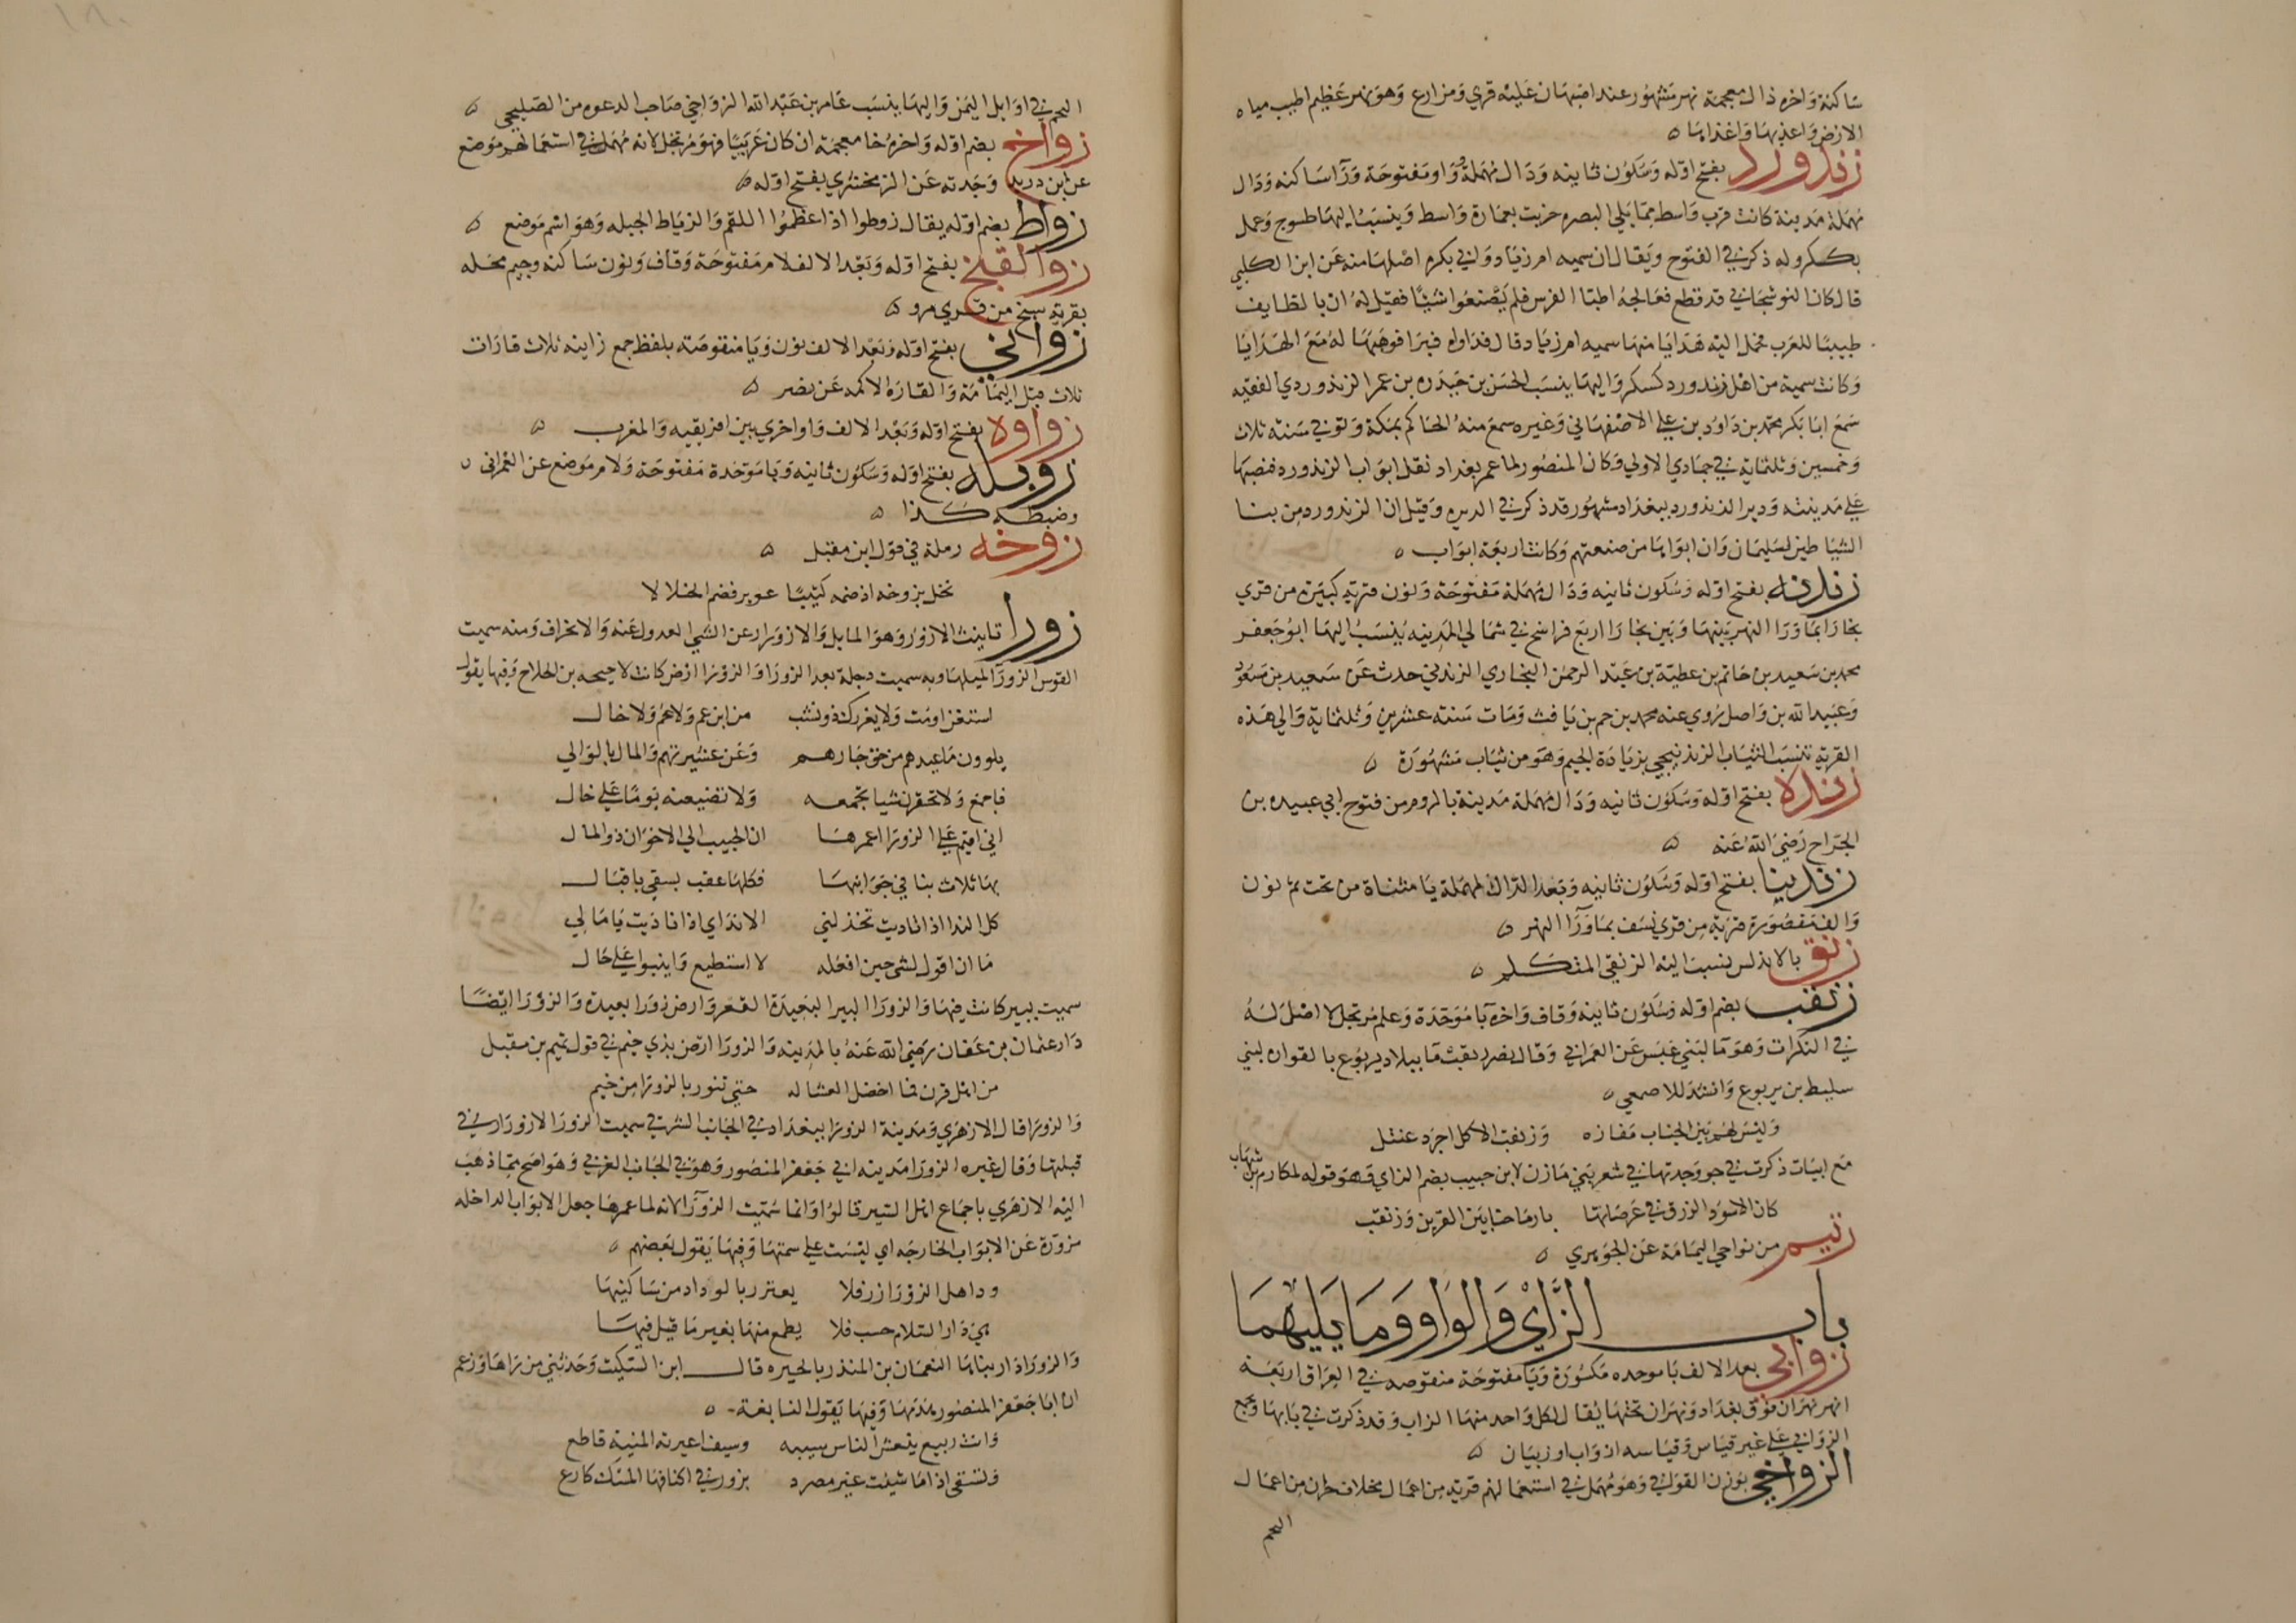 ساكنة واخره ذال معجمة نهر مشهور عند اصبهان عليه قري ومزارع وهو نهر عظيم اطيب مياه
الارض واعذبها واغذاها
زندورد بفتح اوله وسكون ثانيه ودال مهملة وواو مفتوحة ورآ ساكنه ودال
مهملة مدينة كانت قرب واسط مما يلي البصره خربت بعمارة واسط وينسب اليها طسوج وعمل
بكسكر وله ذكر في الفتوح ويقال ان سميه ام زياد وابي بكره اصلها منه عن ابن الكلبي
قال كان النوشجاني قد قطع فعالجه اطبا الفرس فلم يصنعوا شيئا فقيل له ان بالطايف
طبيبا للعرب فحمل اليه هدايا منها سميه ام زياد وقال فداواه فبرا فوهبها له مع الهدايا
وكانت سمية من اهل زندورد كسكر واليها ينسب الحسن بن حيدره بن عمر الزندوردي الفقيه
سمع ابا بكر محمد بن داود بن علي الاصفهاني وغيره سمع منه الحاكم بمكة وتوفي سنه ثلاث
وخمسين وثلثماية في جمادي الاولي وكان المنصور لما عمر بغداد نقل ابواب الزندورد فنصبها
علي مدينته ودير الزندورد ببغداد مشهور قد ذكر في الديره وقيل ان الزندورد من بنا
الشياطين لسليمان وان ابوابها من صنعتهم وكانت اربعة ابواب
زندنه بفتح اوله وسكون ثانيه ودال مهملة مفتوحة ونون قرية كبيرة من قري
بخارا بما ورا النهر بينها وبين بخارا اربع فراسخ في شمالي المدينه ينسب اليها ابو جعفر
محمد بن سعيد بن حاتم بن عطية بن عبد الرحمن البخاري الزندني حدث عن سعيد بن مسعود
وعبيد الله بن واصل روي عنه محمد بن حم بن يافث ومات سنه عشرين وثلثماية والي هذه
القرية تنسب الثياب الزندنيجي بزيادة الجيم وهو من ثياب مشهورة
زنده بفتح اوله وسكون ثانيه ودال مهملة مدينة بالروم من فتوح ابي عبيده بن
الجراح رضي الله عنه
زندينا بفتح اوله وسكون ثانيه وبعد الدال المهملة يا مثناة من تحت ثم نون
والف مقصورة قرية من قري نسف بما ورآ النهر
زنق بالاندلس ينسب اليه الزنقي المتكلم
زنقب بضم اوله وسكون ثانيه وقاف واخره با موحدة وعلم مرتجل لا اصل له
في النكرات وهو ما لبني عبس عن العمراني وقال نصر زنقب ما ببلاد يربوع بالقواره لبني
سليط بن يربوع وانشد للاصمعي
وليس لهم بين الجناب مفازه وزنقب الا كل اجرد عنتل
مع ابيات ذكرت في جو وجدتها في شعر بني مازن لابن حبيب بضم الزاي وهو قوله لمكارم بن شهاب
كان الاسود الزرق في عرصاتها بارماحنا بين القرين وزنقب
زنيم من نواحي اليمامة عن الجوهري
باب الزاي والواو وما يليهما
زوابي بعد الالف با موحده مكسورة ويا مفتوحة منقوصه في العراق اربعة
انهر نهران فوق بغداد ونهران تحتها يقال لكل واحد منها الزاب وقد ذكرت في بابها وجمع
الزوابي علي غير قياس وقياسه ازواب او زيبان
الزواخي بوزن القوافي وهو مهمل في استعمالهم قرية من اعمال مخلاف حراز من اعمال
النجم
النجم في اوايل اليمن واليها ينسب عامر بن عبد الله الزواخي صاحب الدعوه من الصليحي
زواخ بضم اوله واخره خا معجمة ان كان عربيا فهو مرتجل لانه مهمل في استعمالهم موضع
عن ابن دريد وجدته عن الزمخشري بفتح اوله
زواط بضم اوله يقال زوطوا اذا عظموا اللقم والزياط الجبله وهو اسم موضع
زوالقنج بفتح اوله وبعد الالف لام مفتوحة وقاف ونون ساكنه وجيم محله
بقرية سنج من قري مرو
زواني بفتح اوله وبعد الالف نون ويا منقوصه بلفظ جمع زانيه ثلاث قارات
ثلاث قبل اليمامة والقاره الاكمه عن نصر
زواوه بفتح اوله وبعد الالف واو اخري بين افريقيه والمغرب
زوبله بفتح اوله وسكون ثانيه وبا موحدة مفتوحة ولام موضع عن العمراني
وضبطه كذا
زوخه رملة في قول ابن مقبل
نخل بزوخه اذ ضمه كثيبا عوير فضم الخلالا
زورا تانيث الازور وهو المايل والازورار عن الشي العدول عنه والانحراف ومنه سميت
القوس الزورآ لميلها وبه سميت دجلة بغداد الزورا والزورا ارض كانت لاحيحه بن الجلاح وفيها يقول
استغن او مت ولا يغررك ذو نشب من ابن عم ولا عم ولا خال
يلوون ما عندهم من حق جارهم وعن عشيرتهم والمال بالوالي
فاجمع ولا تحقرن شيا تجمعه ولا تضيعنه يوما علي حال
اني اقيم علي الزورا اعمرها ان الحبيب الي الاخوان ذو المال
بها ثلاث بنا في جوانبها فكلها عقب يسقي باقبال
كل الندا اذا ناديت تخذلني الا نداي اذا ناديت يا مالي
ما ان اقول لشي حين افعله لا استطيع وا ينبوا علي حال
سميت ببير كانت فيها والزورا البير البعيدة القعر وارض زورا بعيدة والزورا ايضا
دار عثمان بن عفان رضي الله عنه بالمدينه والزورا ارض بذي خيم في قول تميم بن مقبل
من اهل قرن فما اخضل العشا له حتي تنور بالزورا من خيم
والزورا قال الازهري ومدينة الزورا ببغداد في الجانب الشرقي سميت الزورا لازورار في
قبلتها وقال غيره الزورا مدينه ابي جعفر المنصور وهو في الجانب الغربي وهو اصح مما ذهب
اليه الازهري باجماع اهل السير قالوا وانما سميت الزورآ لانه لما عمرها جعل الابواب الداخله
مزورة عن الابواب الخارجه اي ليست علي سمتها وفيها يقول بعضهم
ود اهل الزورا زور فلا يغترر بالوداد من ساكنيها
هي دار السلام حسب فلا يطمع منها بغير ما قيل فيها
والزورا دار بناها النعمان بن المنذر بالحيره قال ابن السكيت وحدثني من راها وزعم
ان ابا جعفر المنصور هدمها وفيها يقول النابغة
وانت ربيع ينعش الناس سيبه وسيف اعيرته المنية قاطع
وتسقي اذا ما شيت غير مصرد بزورا في اكنافها المسك كارع